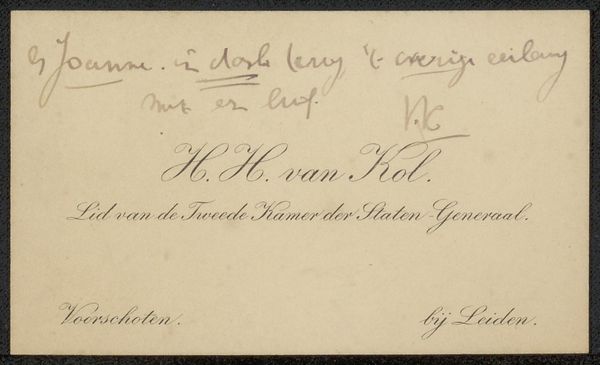 Joanne. in dank terug 't overige
met en
V.K
H. H. van Kol.
Lid van de Tweede Kamer der Staten-Generaal.
Voorschoten. bij Leiden.